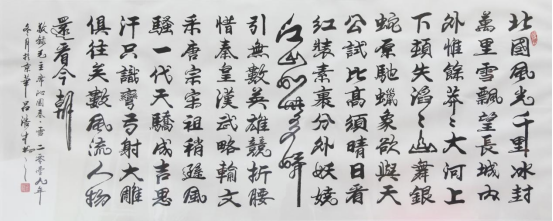 北國風光千里冰封
萬里雪飄望長城内
外惟餘莽〻大河上
下頓失滔〻山舞銀
蛇原馳蠟象欲與天
公試比高須晴日看
紅裝素裹分外妖嬈
江山如此多嬌
引無數英雄競折腰
惜秦皇漢武略輸文
采唐宗宋祖稍遜風
騷一代天驕成吉思
汗只識彎弓射大雕
俱往矣數風流人物
還看今朝
敬錄毛主席沁園春·雪 二零壹九年
冬月於京華